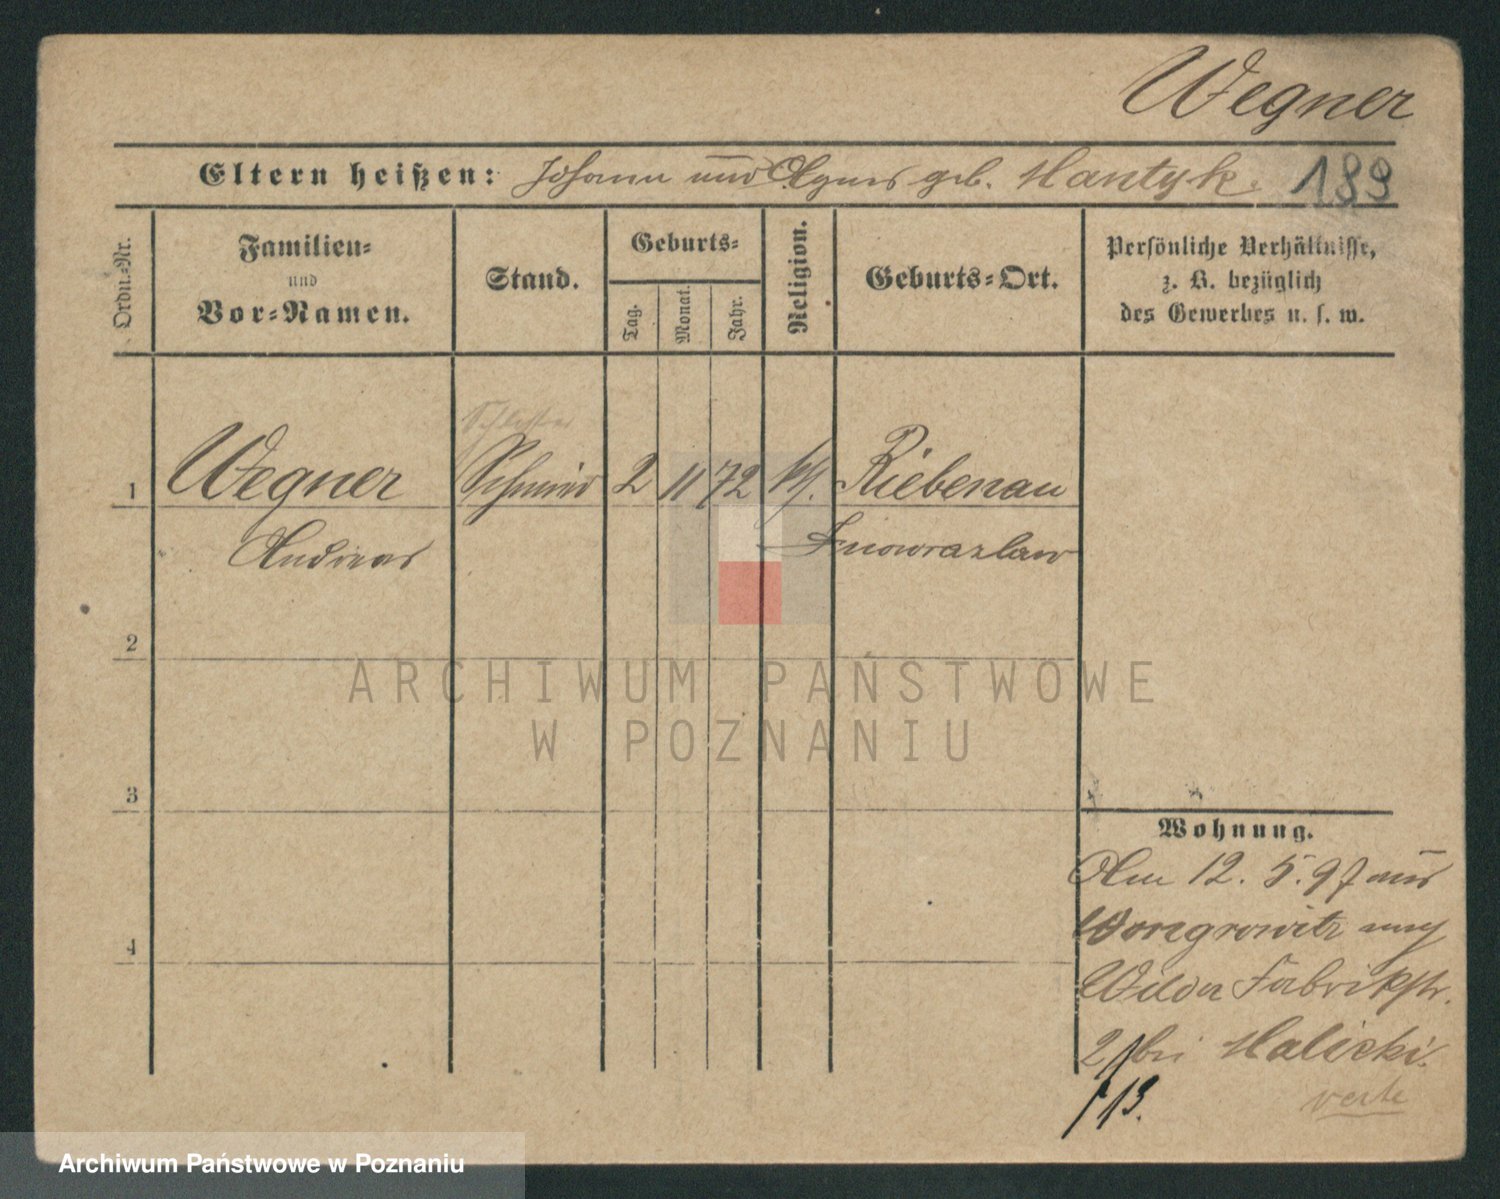 Wegner
Eltern heißen: Johann und Agnes geb. Hantyk. 189
Ordn.-Nr.
Familien-
und
Vor-Namen.
Stand.
Geburts-
Tag.
Monat.
Jahr.
Religion.
Geburts-Ort.
Persönliche Verhältnisse,
z. B. bezüglich
des Gewerbes u. s. w.
Schlosser
1 Wegner Schmied 2 11 72 kth. Riebenau
Andreas Inowrazlaw
2
ARCHIWUM PAŃSTWOWE
W POZNANIU
3
4
Wohnung.
Am 12. 5. 97 aus
Wongrowitz nach
Wilda Fabrikstr.
2 bei Halicki.
13.
verte
Archiwum Państwowe w Poznaniu